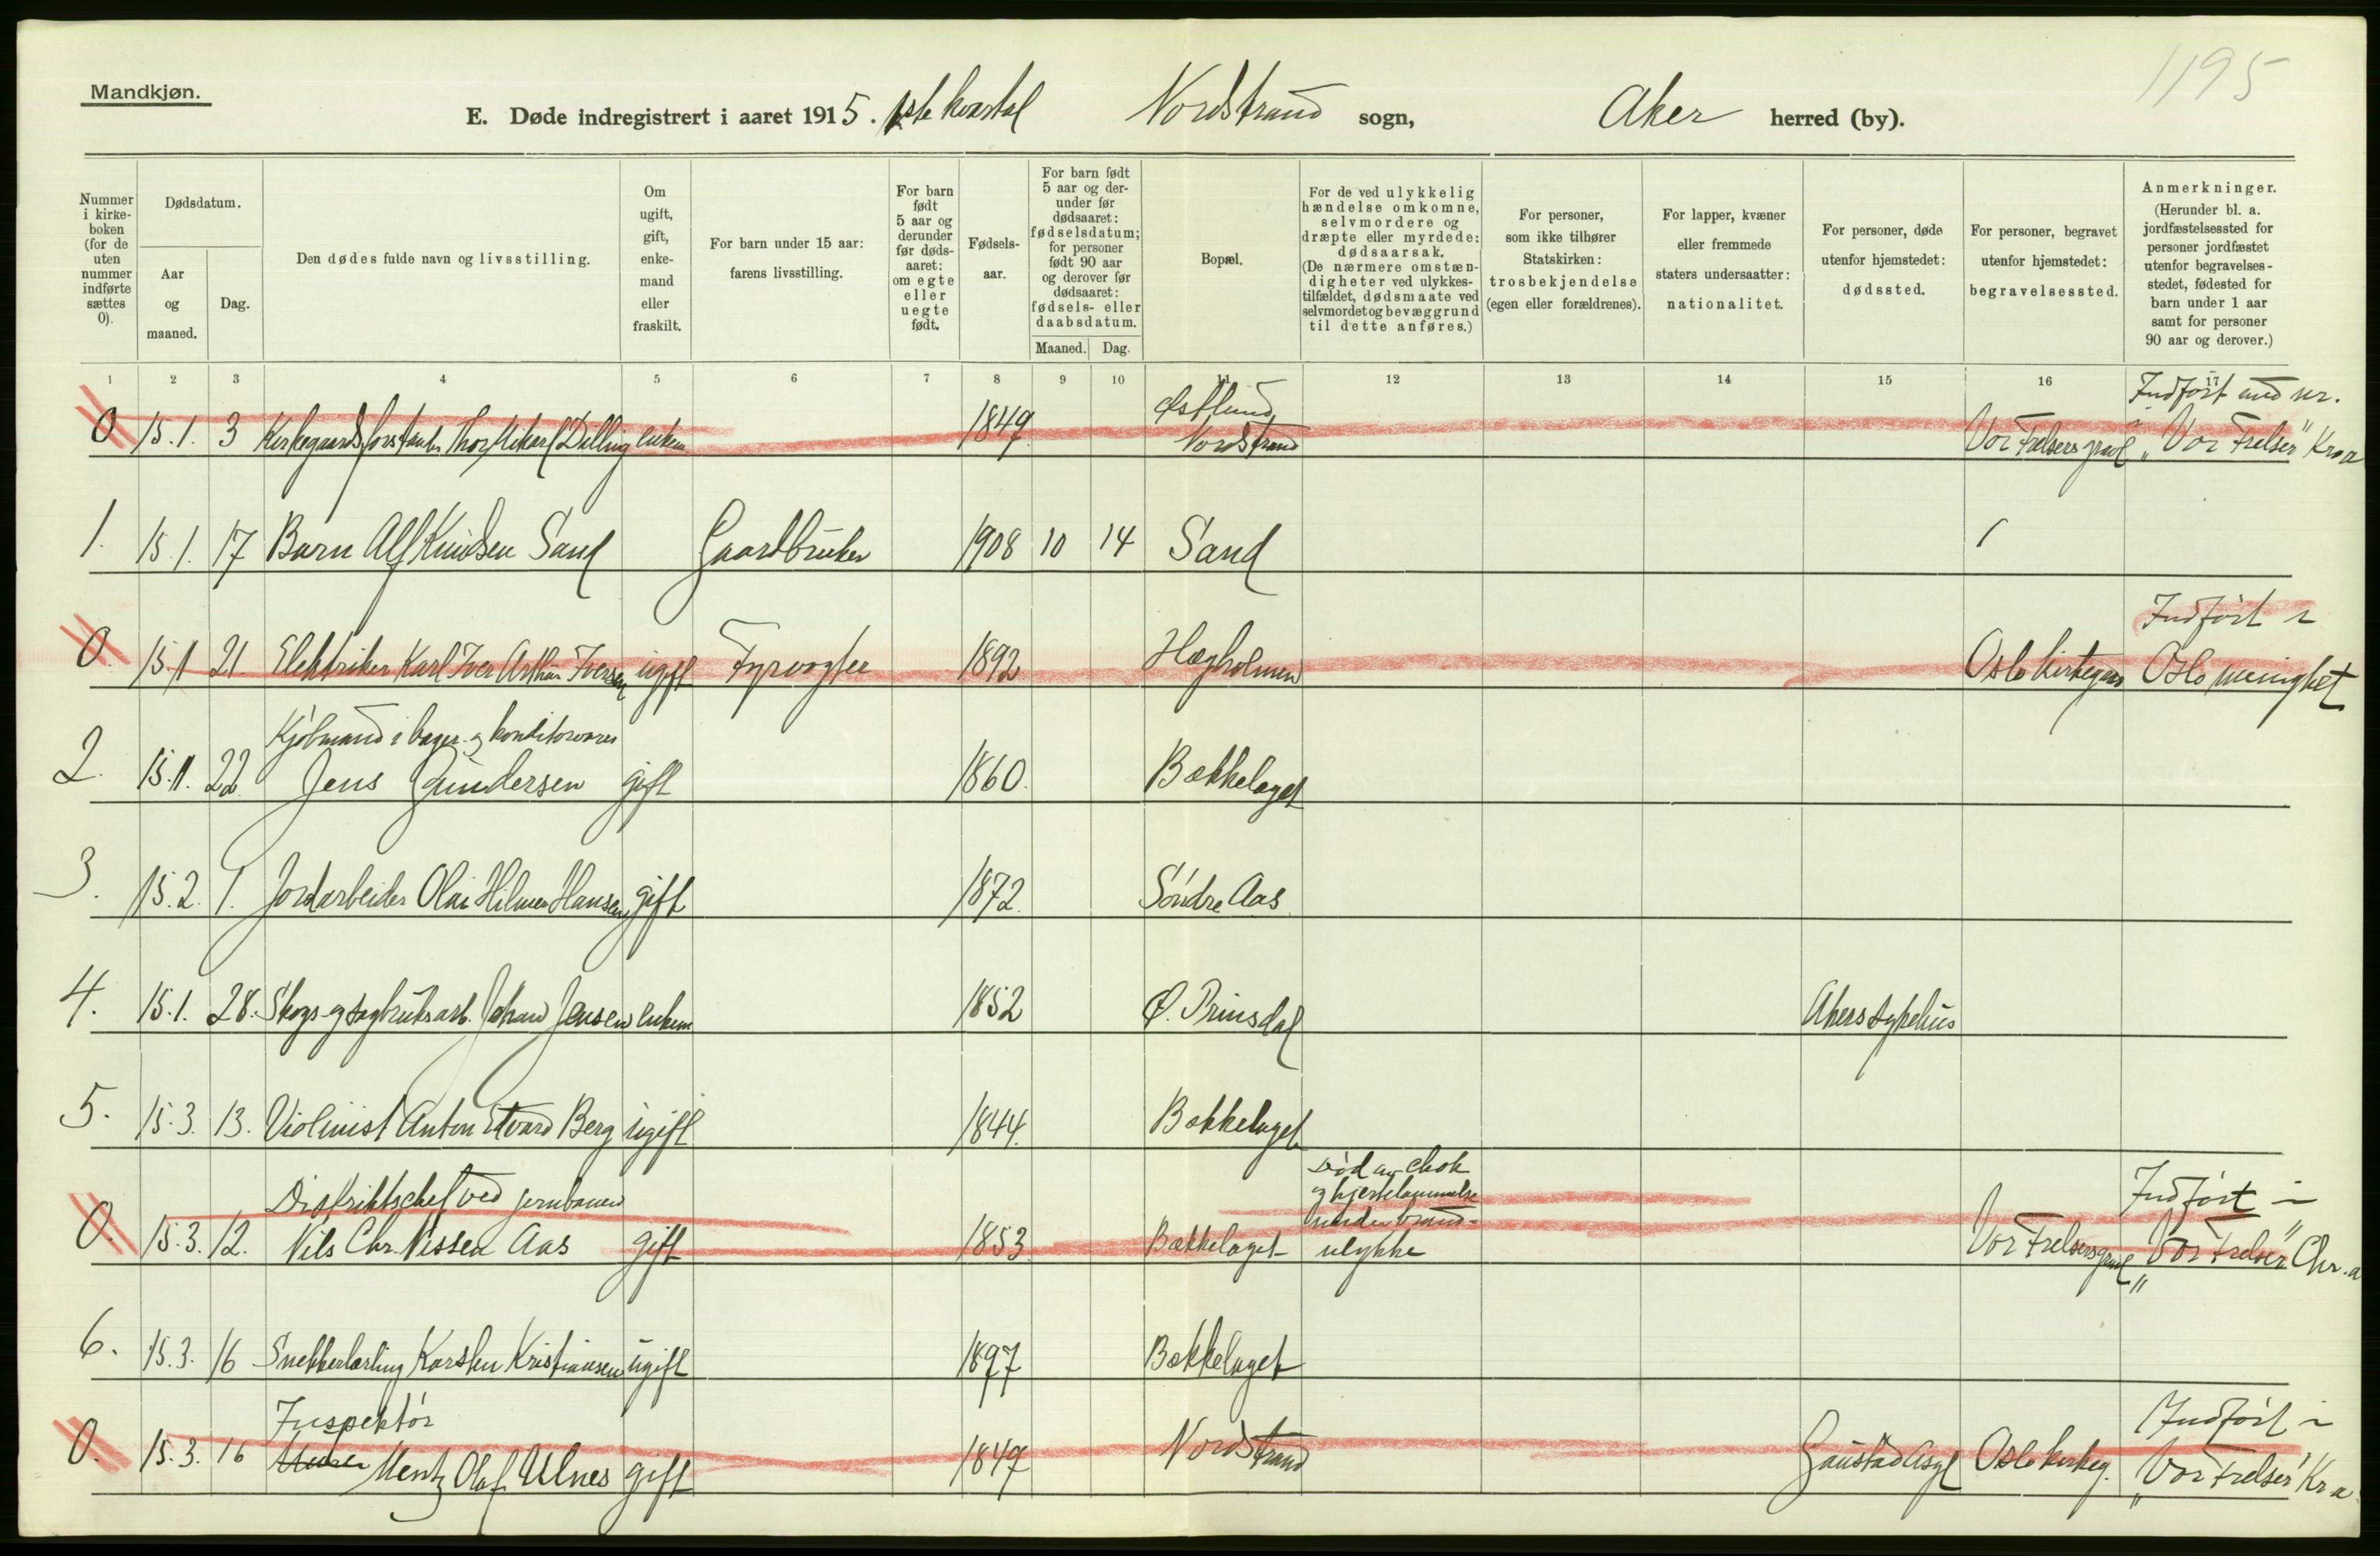 1195
Mandkjøn.
E. Døde indregistrert i aaret 1915. 1ste kvartal Nordstrand sogn, Aker herred (by).
Nummer i kirke-boken (for de uten nummer indførte sættes 0).
Dødsdatum.
Aar og maaned.
Dag.
Den dødes fulde navn og livsstilling.
Om ugift, gift, enke-mand eller fraskilt.
For barn under 15 aar: farens livsstilling.
For barn født 5 aar og derunder før døds-aaret: om egte eller uegte født.
Fødsels-aar.
For barn født 5 aar og der-under før dødsaaret: fødselsdatum; for personer født 90 aar og derover før dødsaaret: fødsels- eller daabsdatum.
Maaned. Dag.
Bopæl.
For de ved ulykkelig hændelse omkomne, selvmordere og dræpte eller myrdede: dødsaarsak. (De nærmere omstæn-digheter ved ulykkes-tilfældet, dødsmaate ved selvmordet og bevæggrund til dette anføres.)
For personer, som ikke tilhører Statskirken: trosbekjendelse (egen eller forældrenes).
For lapper, kvæner eller fremmede staters undersaatter: nationalitet.
For personer, døde utenfor hjemstedet: dødssted.
For personer, begravet utenfor hjemstedet: begravelsessted.
Anmerkninger. (Herunder bl. a. jordfæstelsessted for personer jordfæstet utenfor begravelses-stedet, fødested for barn under 1 aar samt for personer 90 aar og derover.)
1 2 3 4 5 6 7 8 9 10 11 12 13 14 15 16 17
Østlund Indført med nr. i
0 15.1. 3 Kirkegaardsforstander Thor Mikael Dilling enkem. 1849. Nordstrand Vor Frelsers gravl „Vor Frelser" Kr.a
1. 15.1. 17 Barn Alf Knudsen Sand Gaardbruker 1908 10 14 Sand
Indført i
0. 15.1 21. Elektriker Karl Iver Arthur Iversen ugift Fyrvogter 1892 Hægholmen Oslo kirkegaard Oslo menighet
Kjøbmand i bager- og konditorvarer
2. 15.1. 22 Jens Gundersen gift 1860. Bækkelaget
3. 15.2. 1. Jordarbeider Olai Hilmer Hansen gift 1872. Søndre Aas
4. 15.1. 28. Skogs- og sagbruksarb. Johan Jensen enkem 1852 Ø. Prinsdal Akers sykehus
5. 15.3. 13. Violinist Anton Edvard Berg ugift 1844. Bækkelaget
Distriktschef ved jernbanen Død av chok og hjertelammelse under brand- Indført i
0. 15.3. 12. Nils Chr. Nissen Aas gift 1853 Bækkelaget ulykke Vor Frelsers gravl „Vor Frelser" Chr.a
6. 15.3. 16 Snekkerlærling Karsten Kristiansen ugift 1897 Bækkelaget
Inspektør Indført i
0. 15.3. 16 Mentz Olaf Ulnes gift 1849 Nordstrand Gaustad Asyl Oslo kirkeg. „Vor Frelser" Kr.a